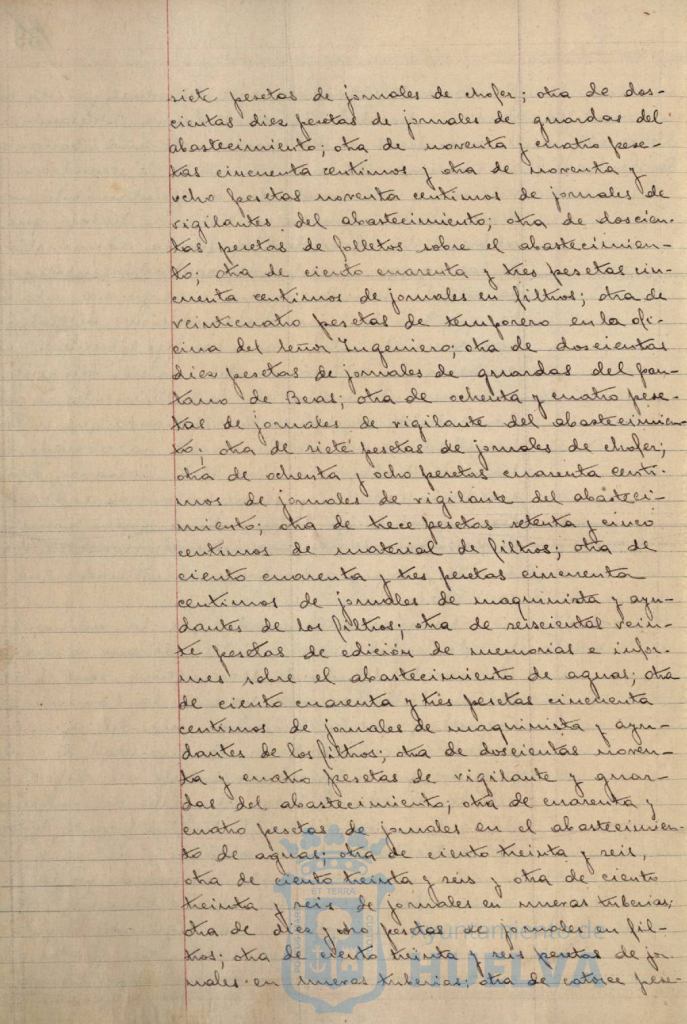 siete pesetas de jornales de chofer; otra de dos-
cientas diez pesetas de jornales de guardas del
abastecimiento; otra de noventa y cuatro pese-
tas cincuenta centimos y otra de noventa y
ocho pesetas noventa centimos de jornales de
vigilantes del abastecimiento; otra de doscien-
tas pesetas de folletos sobre el abastecimien-
to; otra de ciento cuarenta y tres pesetas cin-
cuenta centimos de jornales en filtros; otra de
veinticuatro pesetas de temporero en la ofi-
cina del señor Ingeniero; otra de doscientas
diez pesetas de jornales de guardas del pan-
tano de Beas; otra de ochenta y cuatro pese-
tas de jornales de vigilante del abastecimien-
to; otra de siete pesetas de jornales de chofer;
otra de ochenta y ocho pesetas cuarenta centi-
mos de jornales de vigilante del abasteci-
miento; otra de trece pesetas setenta y cinco
centimos de material de filtros; otra de
ciento cuarenta y tres pesetas cincuenta
centimos de jornales de maquinista y ayu-
dantes de los filtros; otra de seiscientas vein-
te pesetas de edición de memorias e infor-
mes sobre el abastecimiento de aguas; otra
de ciento cuarenta y tres pesetas cincuenta
centimos de jornales de maquinista y ayu-
dantes de los filtros; otra de doscientas noven-
ta y cuatro pesetas de vigilante y guar-
das del abastecimiento; otra de cuarenta y
cuatro pesetas de jornales en el abastecimien-
to de aguas; otra de ciento treinta y seis,
otra de ciento treinta y seis y otra de ciento
treinta y seis de jornales en nuevas tuberias;
otra de diez y ocho pesetas de jornales en fil-
tros; otra de ciento treinta y seis pesetas de jor-
nales en nuevas tuberias; otra de catorce pese-
Ayuntamiento de
HUELVA